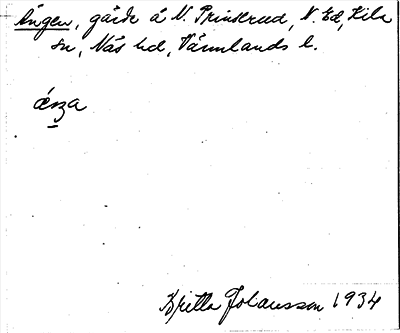 Ängen, gärde å N. Prinserud, N. Ed, Kila
sn, Näs hd, Värmlands l.
Kjitta Johansson 1934